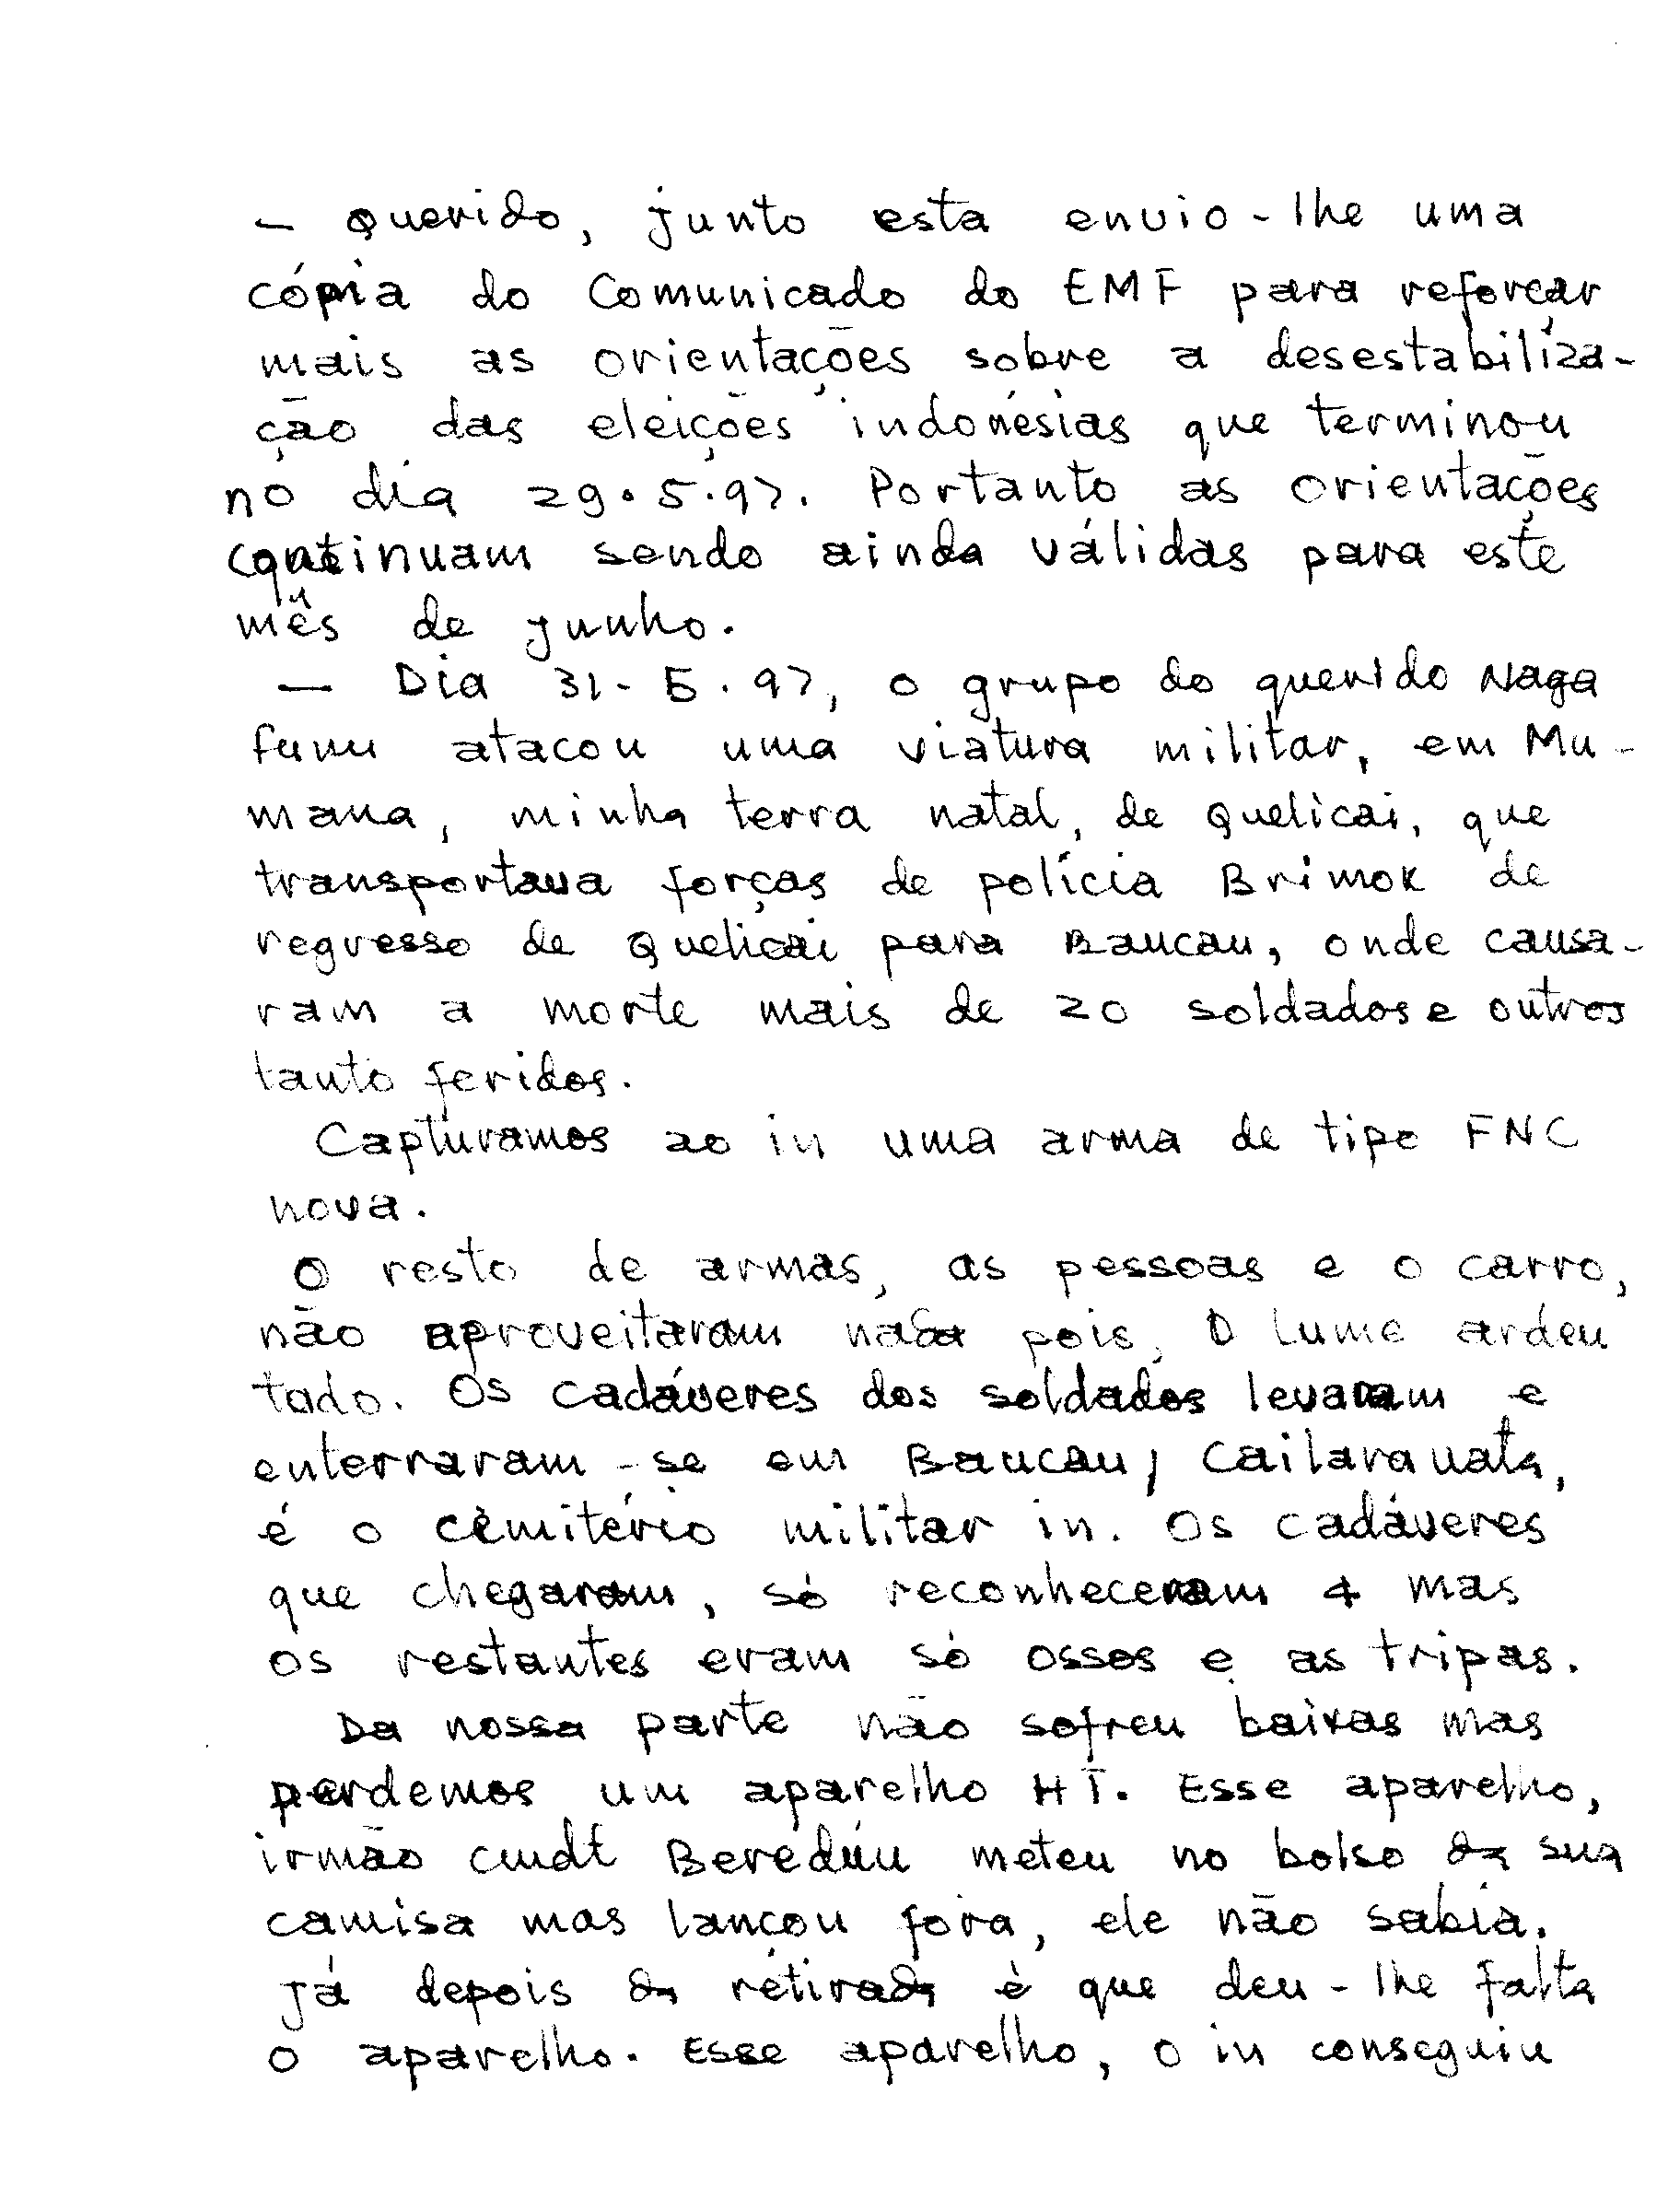 - Querido, junto esta envio-lhe uma
cópia do Comunicado do EMF para reforçar
mais as orientações sobre a desestabiliza-
ção das eleições indonésias que terminou
no dia 29.5.97. Portanto as orientações
continuam sendo ainda válidas para este
mês de junho.
- Dia 31-5.97, o grupo do querido Naga
funu atacou uma viatura militar, em Mu-
mana, minha terra natal, de Quelicai, que
transportava forças de polícia Brimok de
regresso de Quelicai para Baucau, onde causa-
ram a morte mais de 20 soldados e outros
tanto feridos.
Capturamos ao in uma arma de tipo FNC
nova.
O resto de armas, as pessoas e o carro,
não aproveitaram nada pois, O lume ardeu
todo. Os cadáveres dos soldados levaram e
enterraram-se em Baucau, Cailarauata,
é o cemitério militar in. Os cadáveres
que chegaram, só reconheceram 4 mas
os restantes eram só ossos e as tripas.
Da nossa parte não sofreu baixas mas
perdemos um aparelho HT. Esse aparelho,
irmão cmdt Beredúu meteu no bolso da sua
camisa mas lançou fora, ele não sabia.
Já depois da retirada é que deu-lhe falta
o aparelho. Esse aparelho, o in conseguiu